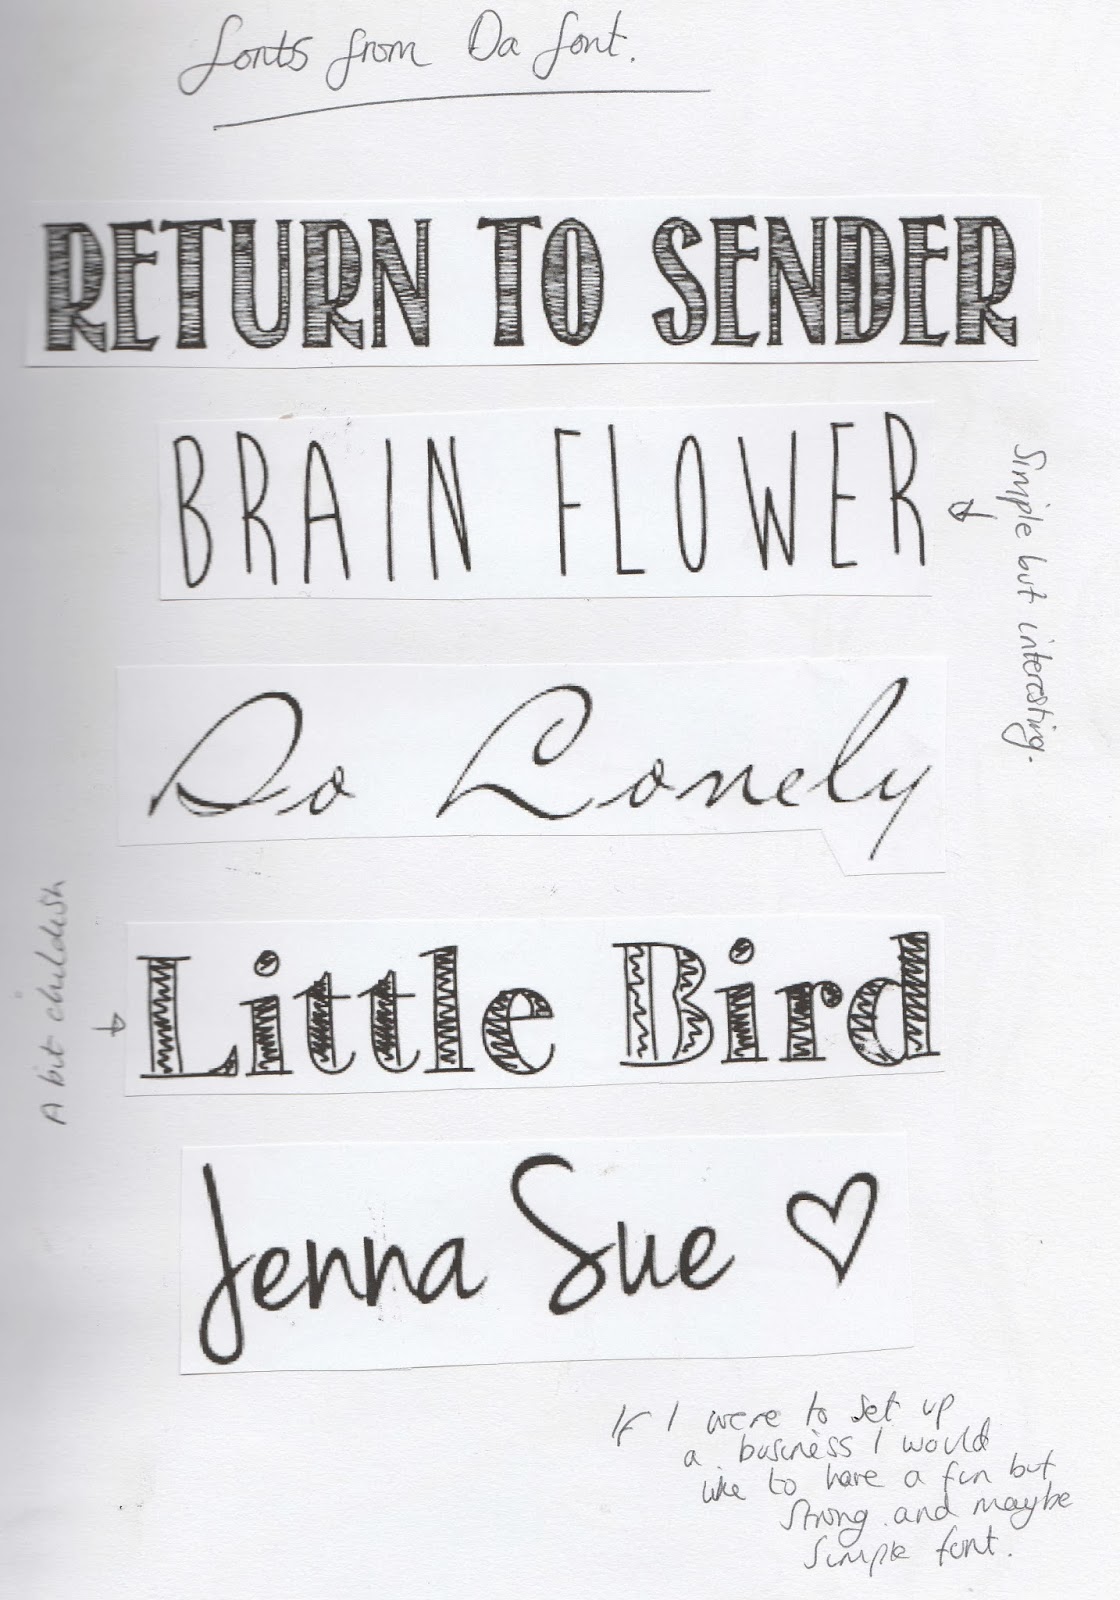 fonts from Da font.
RETURN TO SENDER
BRAIN FLOWER
Simple but interesting.
So Lonely
A bit childish
Little Bird
Jenna Sue
If I were to set up
a business I would
like to have a fun but
strong and maybe
simple font.